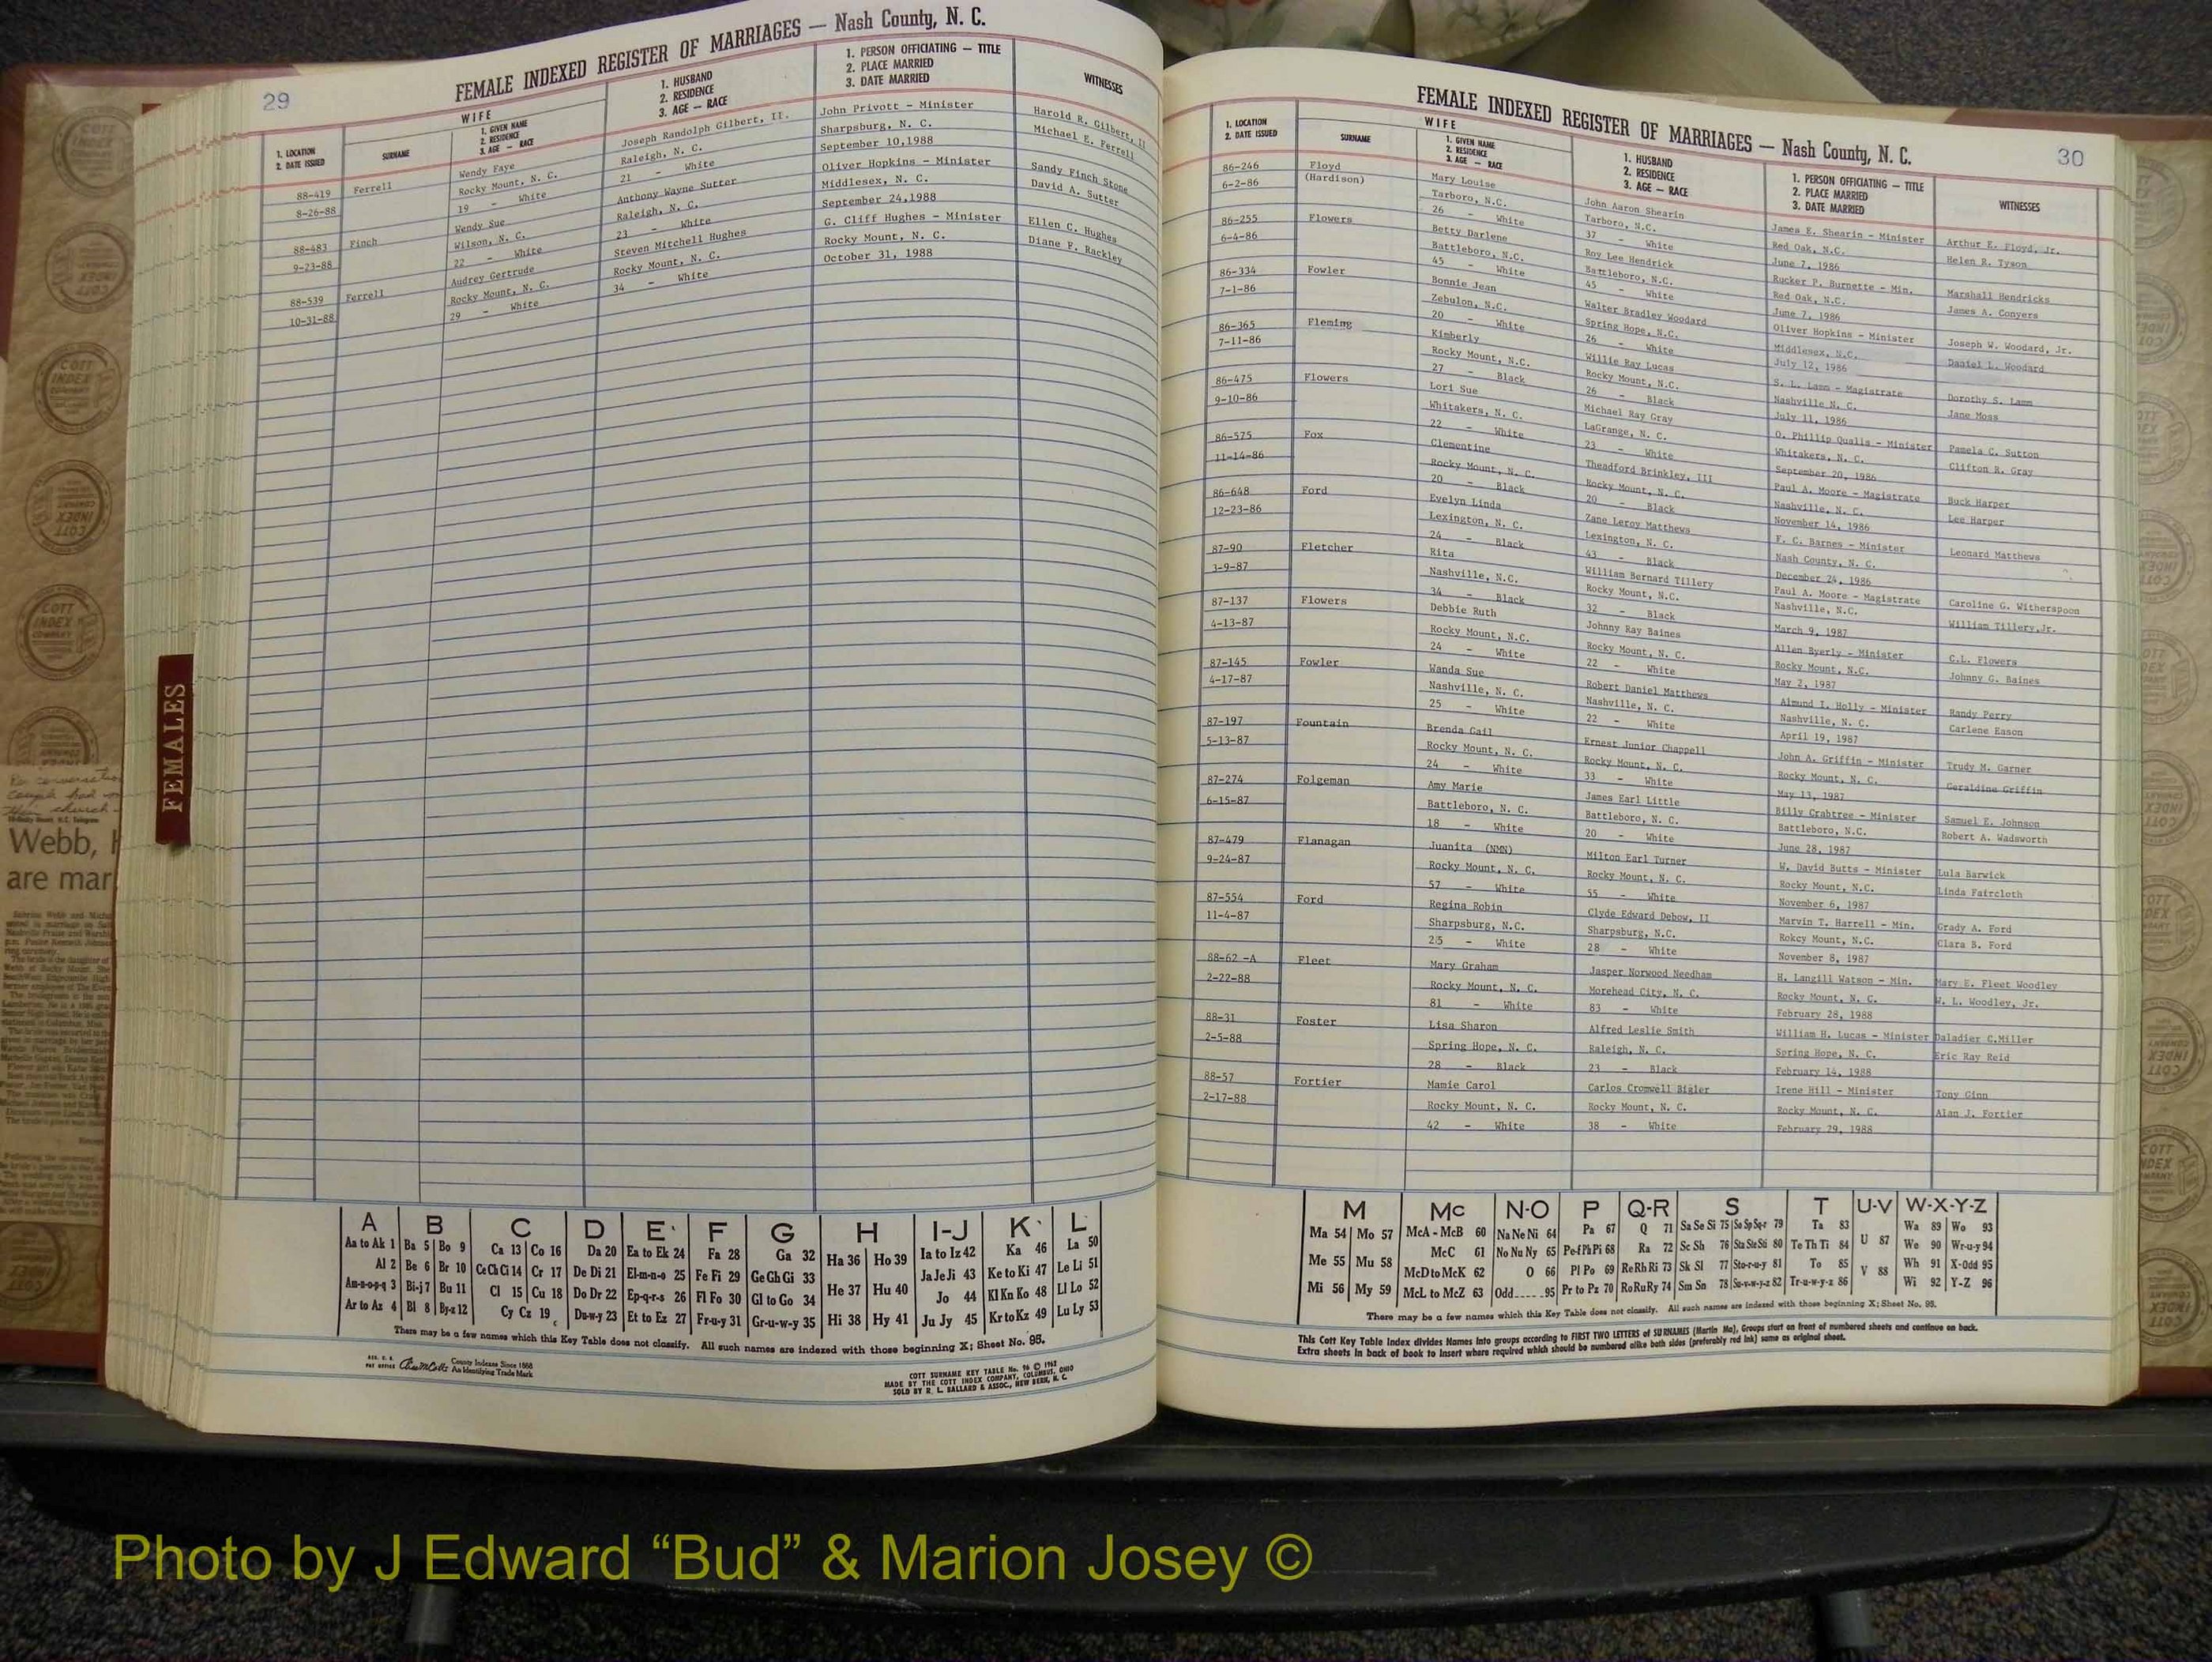 29
FEMALE INDEXED REGISTER OF MARRIAGES — Nash County, N. C.
1. LOCATION
2. DATE ISSUED
SURNAME
WIFE
1. GIVEN NAME
2. RESIDENCE
3. AGE — RACE
1. HUSBAND
2. RESIDENCE
3. AGE — RACE
1. PERSON OFFICIATING — TITLE
2. PLACE MARRIED
3. DATE MARRIED
WITNESSES
88-419 Ferrell Wendy Faye Joseph Randolph Gilbert, II. John Privott - Minister Harold R. Gilbert, II
8-26-88 Rocky Mount, N. C. Raleigh, N. C. Sharpsburg, N. C. Michael E. Ferrell
19 - White 21 - White September 10,1988
88-483 Finch Wendy Sue Anthony Wayne Sutter Oliver Hopkins - Minister Sandy Finch Stone
9-23-88 Wilson, N. C. Raleigh, N. C. Middlesex, N. C. David A. Sutter
22 - White 23 - White September 24,1988
88-539 Ferrell Audrey Gertrude Steven Mitchell Hughes G. Cliff Hughes - Minister Ellen C. Hughes
10-31-88 Rocky Mount, N. C. Rocky Mount, N. C. Rocky Mount, N. C. Diane F. Rackley
29 - White 34 - White October 31, 1988
FEMALES
Webb, H
are mar
A B C D E F G H I-J K L
Aa to Ak 1 Ba 5 Bo 9 Ca 13 Co 16 Da 20 Ea to Ek 24 Fa 28 Ga 32 Ha 36 Ho 39 Ia to Iz 42 Ka 46 La 50
Al 2 Be 6 Br 10 Ce Ch Ci 14 Cr 17 De Di 21 El-m-n-o 25 Fe Fi 29 Ge Gh Gi 33 He 37 Hu 40 Ja Je Ji 43 Ke to Ki 47 Le Li 51
Am-n-o-p-q 3 Bi-j 7 Bu 11 Cl 15 Cu 18 Do Dr 22 Ep-q-r-s 26 Fl Fo 30 Gl to Go 34 Hi 38 Hy 41 Jo 44 Kl Kn Ko 48 Ll Lo 52
Ar to Az 4 Bl 8 By-z 12 Cy Cz 19 Du-w-y 23 Et to Ez 27 Fr-u-y 31 Gr-u-w-y 35 Ju Jy 45 Kr to Kz 49 Lu Ly 53
There may be a few names which this Key Table does not classify. All such names are indexed with those beginning X; Sheet No. 95.
County Indexes Since 1888
An Identifying Trade Mark
COTT SURNAME KEY TABLE No. 96 © 1962
MADE BY THE COTT INDEX COMPANY, COLUMBUS, OHIO
SOLD BY R. L. BALLARD & ASSOC., NEW BERN, N. C.
FEMALE INDEXED REGISTER OF MARRIAGES — Nash County, N. C.
30
1. LOCATION
2. DATE ISSUED
SURNAME
WIFE
1. GIVEN NAME
2. RESIDENCE
3. AGE — RACE
1. HUSBAND
2. RESIDENCE
3. AGE — RACE
1. PERSON OFFICIATING — TITLE
2. PLACE MARRIED
3. DATE MARRIED
WITNESSES
86-246 Floyd Mary Louise John Aaron Shearin James E. Shearin - Minister Arthur E. Floyd, Jr.
6-2-86 (Hardison) Tarboro, N.C. Tarboro, N.C. Red Oak, N.C. Helen R. Tyson
26 - White 37 - White June 7, 1986
86-255 Flowers Betty Darlene Roy Lee Hendrick Rucker P. Burnette - Min. Marshall Hendricks
6-4-86 Battleboro, N.C. Battleboro, N.C. Red Oak, N.C. James A. Conyers
45 - White 45 - White June 7, 1986
86-334 Fowler Bonnie Jean Walter Bradley Woodard Oliver Hopkins - Minister Joseph W. Woodard, Jr.
7-1-86 Zebulon, N.C. Spring Hope, N.C. Middlesex, N.C. Daniel L. Woodard
20 - White 26 - White July 12, 1986
86-365 Fleming Kimberly Willie Ray Lucas S. L. Lamm - Magistrate Dorothy S. Lamm
7-11-86 Rocky Mount, N.C. Rocky Mount, N.C. Nashville N. C. Jane Moss
27 - Black 26 - Black July 11, 1986
86-475 Flowers Lori Sue Michael Ray Gray O. Phillip Qualls - Minister Pamela C. Sutton
9-10-86 Whitakers, N. C. LaGrange, N. C. Whitakers, N. C. Clifton R. Gray
22 - White 23 - White September 20, 1986
86-575 Fox Clementine Theadford Brinkley, III Paul A. Moore - Magistrate Buck Harper
11-14-86 Rocky Mount, N. C. Rocky Mount, N. C. Nashville, N. C. Lee Harper
20 - Black 20 - Black November 14, 1986
86-648 Ford Evelyn Linda Zane Leroy Matthews F. C. Barnes - Minister Leonard Matthews
12-23-86 Lexington, N. C. Lexington, N. C. Nash County, N. C.
24 - Black 43 - Black December 24, 1986
87-90 Fletcher Rita William Bernard Tillery Paul A. Moore - Magistrate Caroline G. Witherspoon
3-9-87 Nashville, N.C. Rocky Mount, N.C. Nashville, N.C. William Tillery,Jr.
34 - Black 32 - Black March 9, 1987
87-137 Flowers Debbie Ruth Johnny Ray Baines Allen Byerly - Minister C.L. Flowers
4-13-87 Rocky Mount, N.C. Rocky Mount, N. C. Rocky Mount, N.C. Johnny G. Baines
24 - White 22 - White May 2, 1987
87-145 Fowler Wanda Sue Robert Daniel Matthews Almund I. Holly - Minister Randy Perry
4-17-87 Nashville, N. C. Nashville, N. C. Nashville, N. C. Carlene Eason
25 - White 22 - White April 19, 1987
87-197 Fountain Brenda Gail Ernest Junior Chappell John A. Griffin - Minister Trudy M. Garner
5-13-87 Rocky Mount, N. C. Rocky Mount, N. C. Rocky Mount, N. C. Geraldine Griffin
24 - White 33 - White May 13, 1987
87-274 Folgeman Amy Marie James Earl Little Billy Crabtree - Minister Samuel E. Johnson
6-15-87 Battleboro, N. C. Battleboro, N. C. Battleboro, N.C. Robert A. Wadsworth
18 - White 20 - White June 28, 1987
87-479 Flanagan Juanita (NMN) Milton Earl Turner W. David Butts - Minister Lula Barwick
9-24-87 Rocky Mount, N. C. Rocky Mount, N. C. Rocky Mount, N.C. Linda Faircloth
57 - White 55 - White November 6, 1987
87-554 Ford Regina Robin Clyde Edward Debow, II Marvin T. Harrell - Min. Grady A. Ford
11-4-87 Sharpsburg, N.C. Sharpsburg, N.C. Rokcy Mount, N.C. Clara B. Ford
25 - White 28 - White November 8, 1987
88-62 -A Fleet Mary Graham Jasper Norwood Needham H. Langill Watson - Min. Mary E. Fleet Woodley
2-22-88 Rocky Mount, N. C. Morehead City, N. C. Rocky Mount, N. C. W. L. Woodley, Jr.
81 - White 83 - White February 28, 1988
88-31 Foster Lisa Sharon Alfred Leslie Smith William H. Lucas - Minister Daladier C.Miller
2-5-88 Spring Hope, N. C. Raleigh, N. C. Spring Hope, N. C. Eric Ray Reid
28 - Black 23 - Black February 14, 1988
88-57 Fortier Mamie Carol Carlos Cromwell Bigler Irene Hill - Minister Tony Ginn
2-17-88 Rocky Mount, N. C. Rocky Mount, N. C. Rocky Mount, N. C. Alan J. Fortier
42 - White 38 - White February 29, 1988
M Mc N-O P Q-R S T U-V W-X-Y-Z
Ma 54 Mo 57 McA - McB 60 Na Ne Ni 64 Pa 67 Q 71 Sa Se Si 75 Sa Sp Sq-r 79 Ta 83 U 87 Wa 89 Wo 93
Me 55 Mu 58 McC 61 No Nu Ny 65 Pe-f Ph Pi 68 Ra 72 Sc Sh 76 Sta Ste Sti 80 Te Th Ti 84 V 88 We 90 Wr-u-y 94
Mi 56 My 59 McD to McK 62 O 66 Pl Po 69 Re Rh Ri 73 Sk Sl 77 Sto-r-u-y 81 To 85 Wh 91 X-Odd 95
McL to McZ 63 Odd 95 Pr to Pz 70 Ro Ru Ry 74 Sm Sn 78 Su-v-w-y-z 82 Tr-u-w-y-z 86 Wi 92 Y-Z 96
There may be a few names which this Key Table does not classify. All such names are indexed with those beginning X; Sheet No. 95.
This Cott Key Table Index divides Names into groups according to FIRST TWO LETTERS of SURNAMES (Martin Ma), Groups start on front of numbered sheets and continue on back.
Extra sheets in back of book to insert where required which should be numbered alike both sides (preferably red ink) same as original sheet.
Photo by J Edward “Bud” & Marion Josey ©